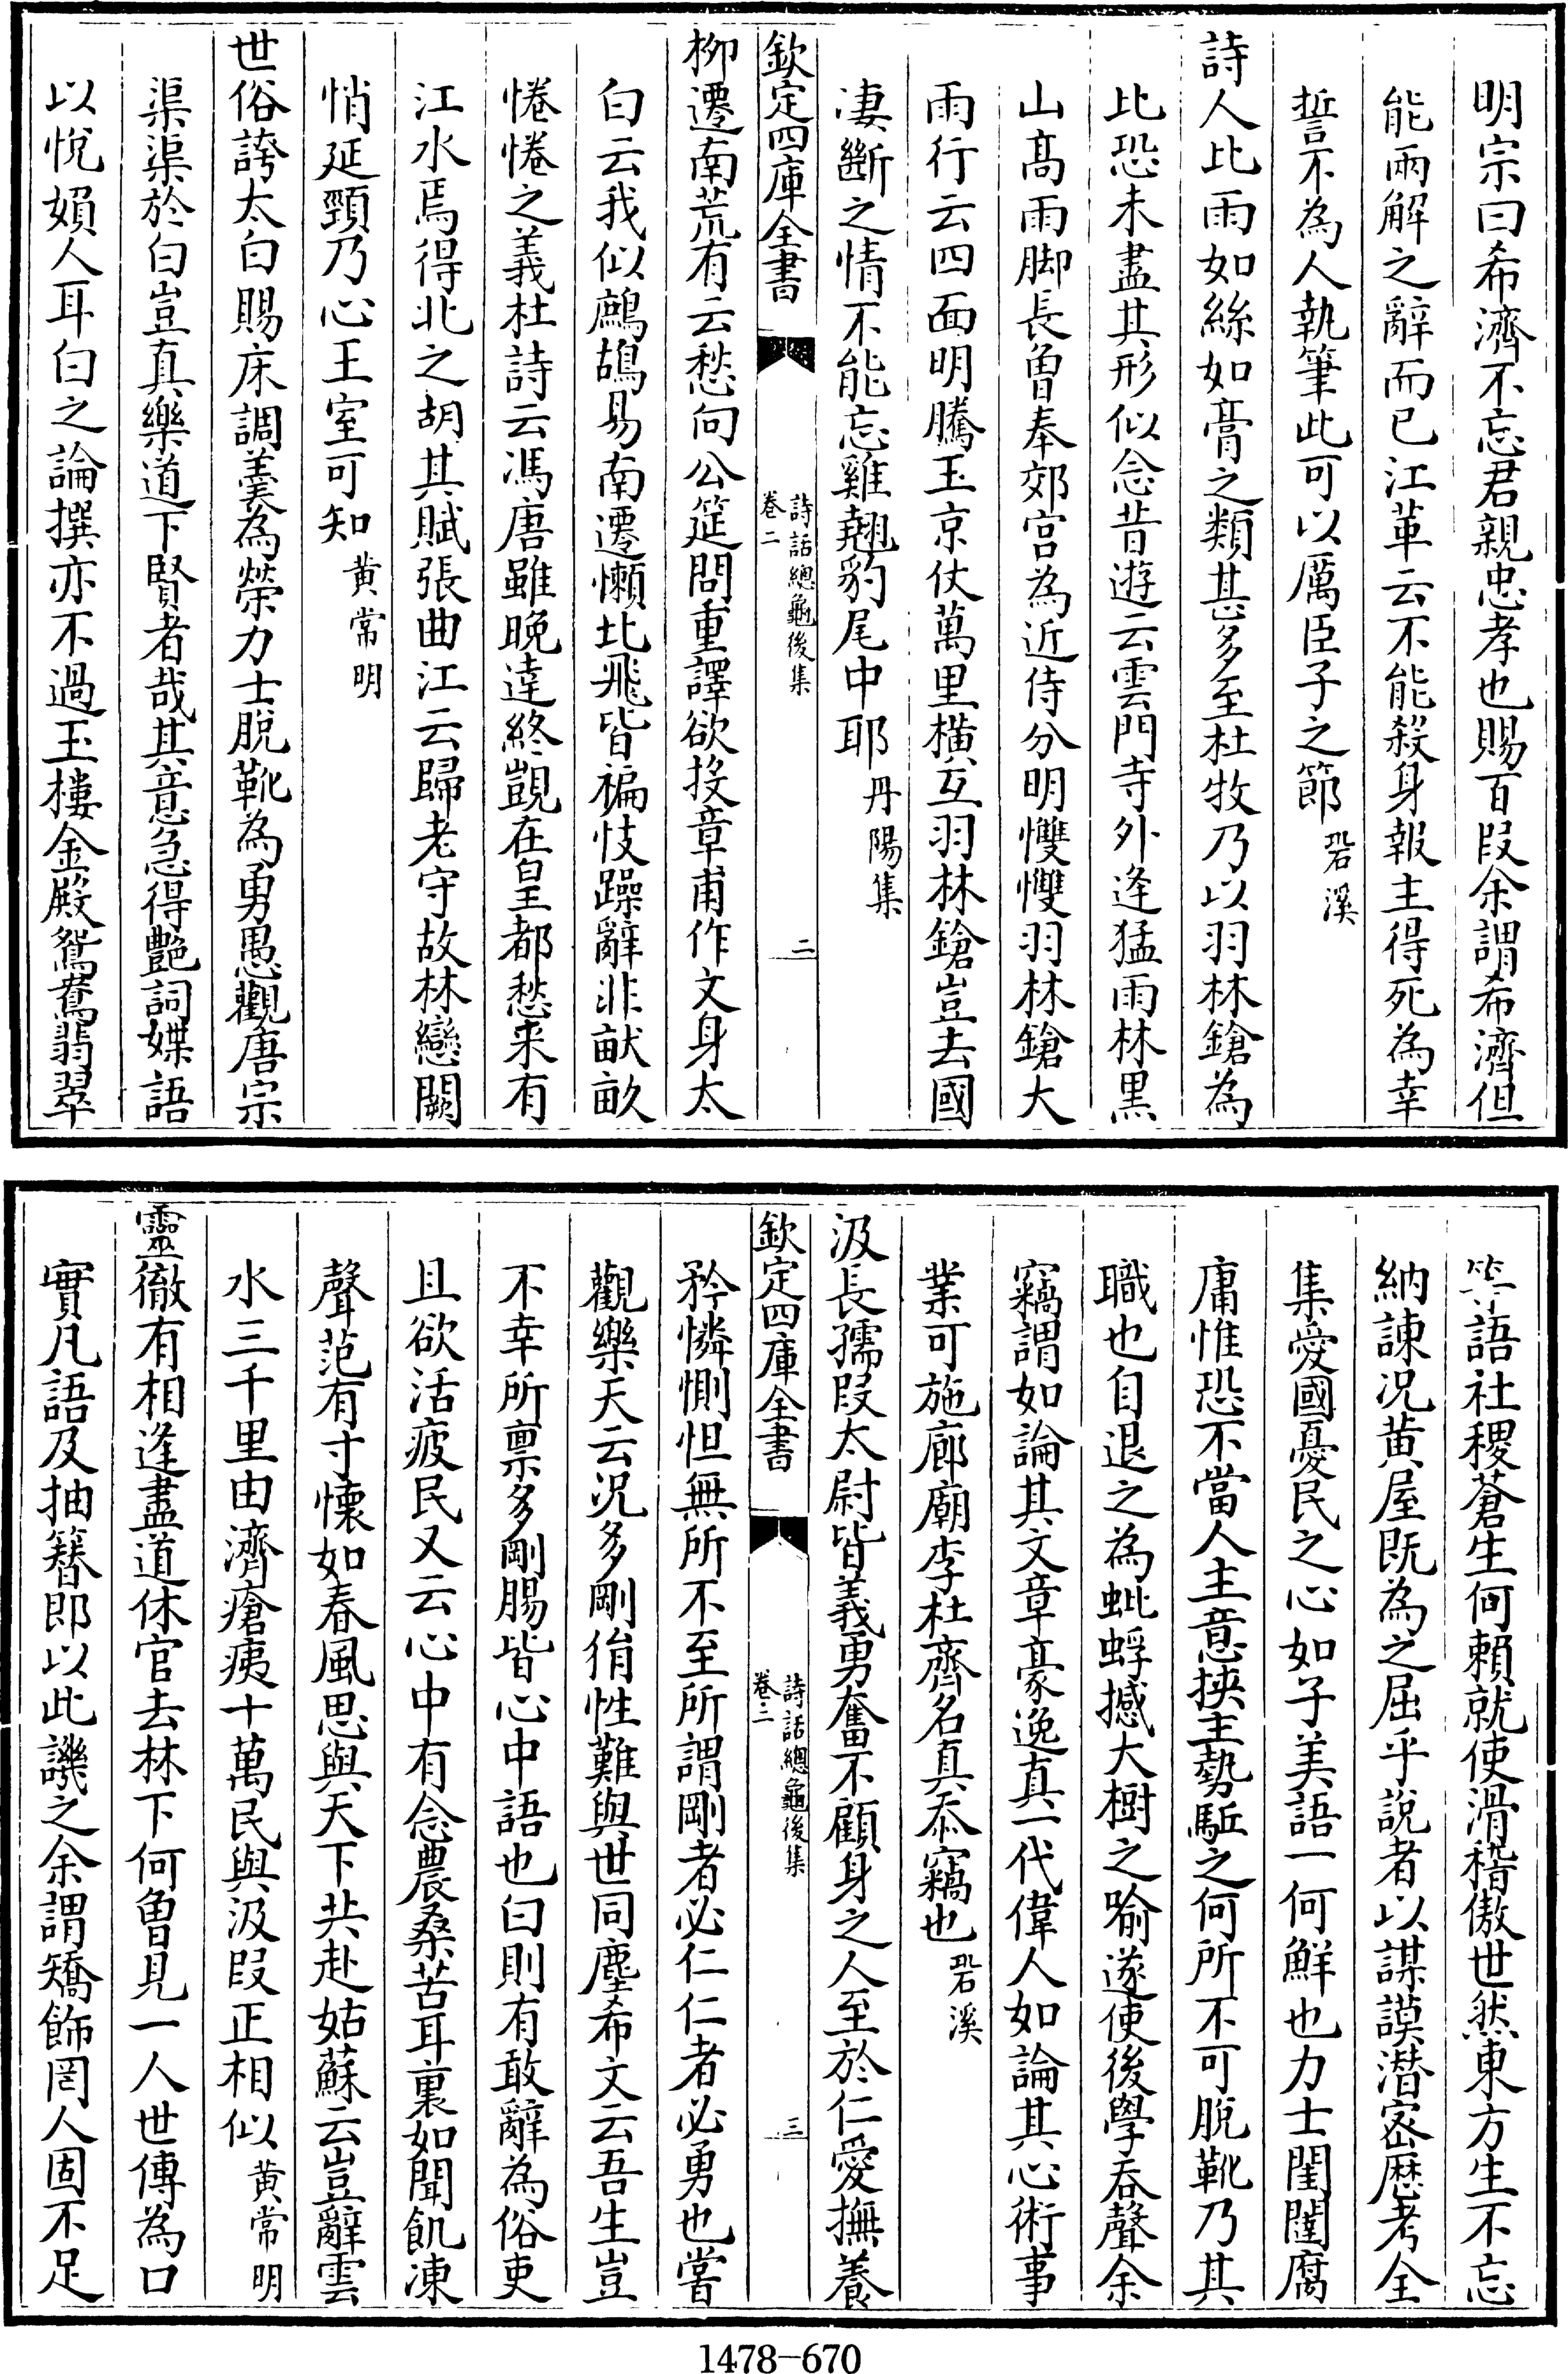 明宗曰希濟不忘君親忠孝也賜百段余謂希濟但
能兩解之辭而已江革云不能殺身報主得死為幸
誓不為人執筆此可以厲臣子之節 䂬溪
詩人比雨如絲如膏之類甚多至杜牧乃以羽林鎗為
比恐未盡其形似念昔遊云雲門寺外逢猛雨林黑
山髙雨脚長曽奉郊宫為近侍分明㦼㦼羽林鎗大
雨行云四面明騰玉京仗萬里横互羽林鎗豈去國
凄斷之情不能忘雞翹豹尾中耶 丹陽集
欽定四庫全書
詩話總龜後集
卷二
二
柳遷南荒有云愁向公筵問重譯欲投章甫作文身太
白云我似鷓鴣易南遷懶北飛皆褊忮躁辭非畎畝
惓惓之義杜詩云馮唐雖晚達終覬在皇都愁来有
江水焉得北之胡其賦張曲江云歸老守故林戀闕
悄延頸乃心王室可知 黄常明
世俗誇太白賜床調羹為榮力士脱靴為勇愚觀唐宗
渠渠於白豈真樂道下賢者哉其意急得艶詞媟語
以悦婦人耳白之論撰亦不過玉樓金殿鴛鴦翡翠
等語社稷蒼生何賴就使滑稽傲世然東方生不忘
納諫况黄屋既為之屈乎説者以謀謨潛宻歴考全
集愛國憂民之心如子美語一何鮮也力士閨闥腐
庸惟恐不當人主意挟主勢駈之何所不可脱靴乃其
職也自退之為蚍蜉撼大樹之喻遂使後學吞聲余
竊謂如論其文章豪逸真一代偉人如論其心術事
業可施廊廟李杜齊名真忝竊也 䂬溪
汲長孺段太尉皆義勇奮不顧身之人至於仁愛撫養
欽定四庫全書
詩話總龜後集
卷二
三
矜憐惻怛無所不至所謂剛者必仁仁者必勇也嘗
觀樂天云况多剛狷性難與世同塵希文云吾生豈
不幸所禀多剛腸皆心中語也白則有敢辭為俗吏
且欲活疲民又云心中有念農桑苦耳裏如聞飢凍
聲范有寸懷如春風思與天下共赴姑蘇云豈辭雲
水三千里由濟瘡痍十萬民與汲段正相似 黄常明
靈徹有相逢盡道休官去林下何曽見一人世傳為口
實凡語及抽簮即以此譏之余謂矯飾罔人固不足
1478—670